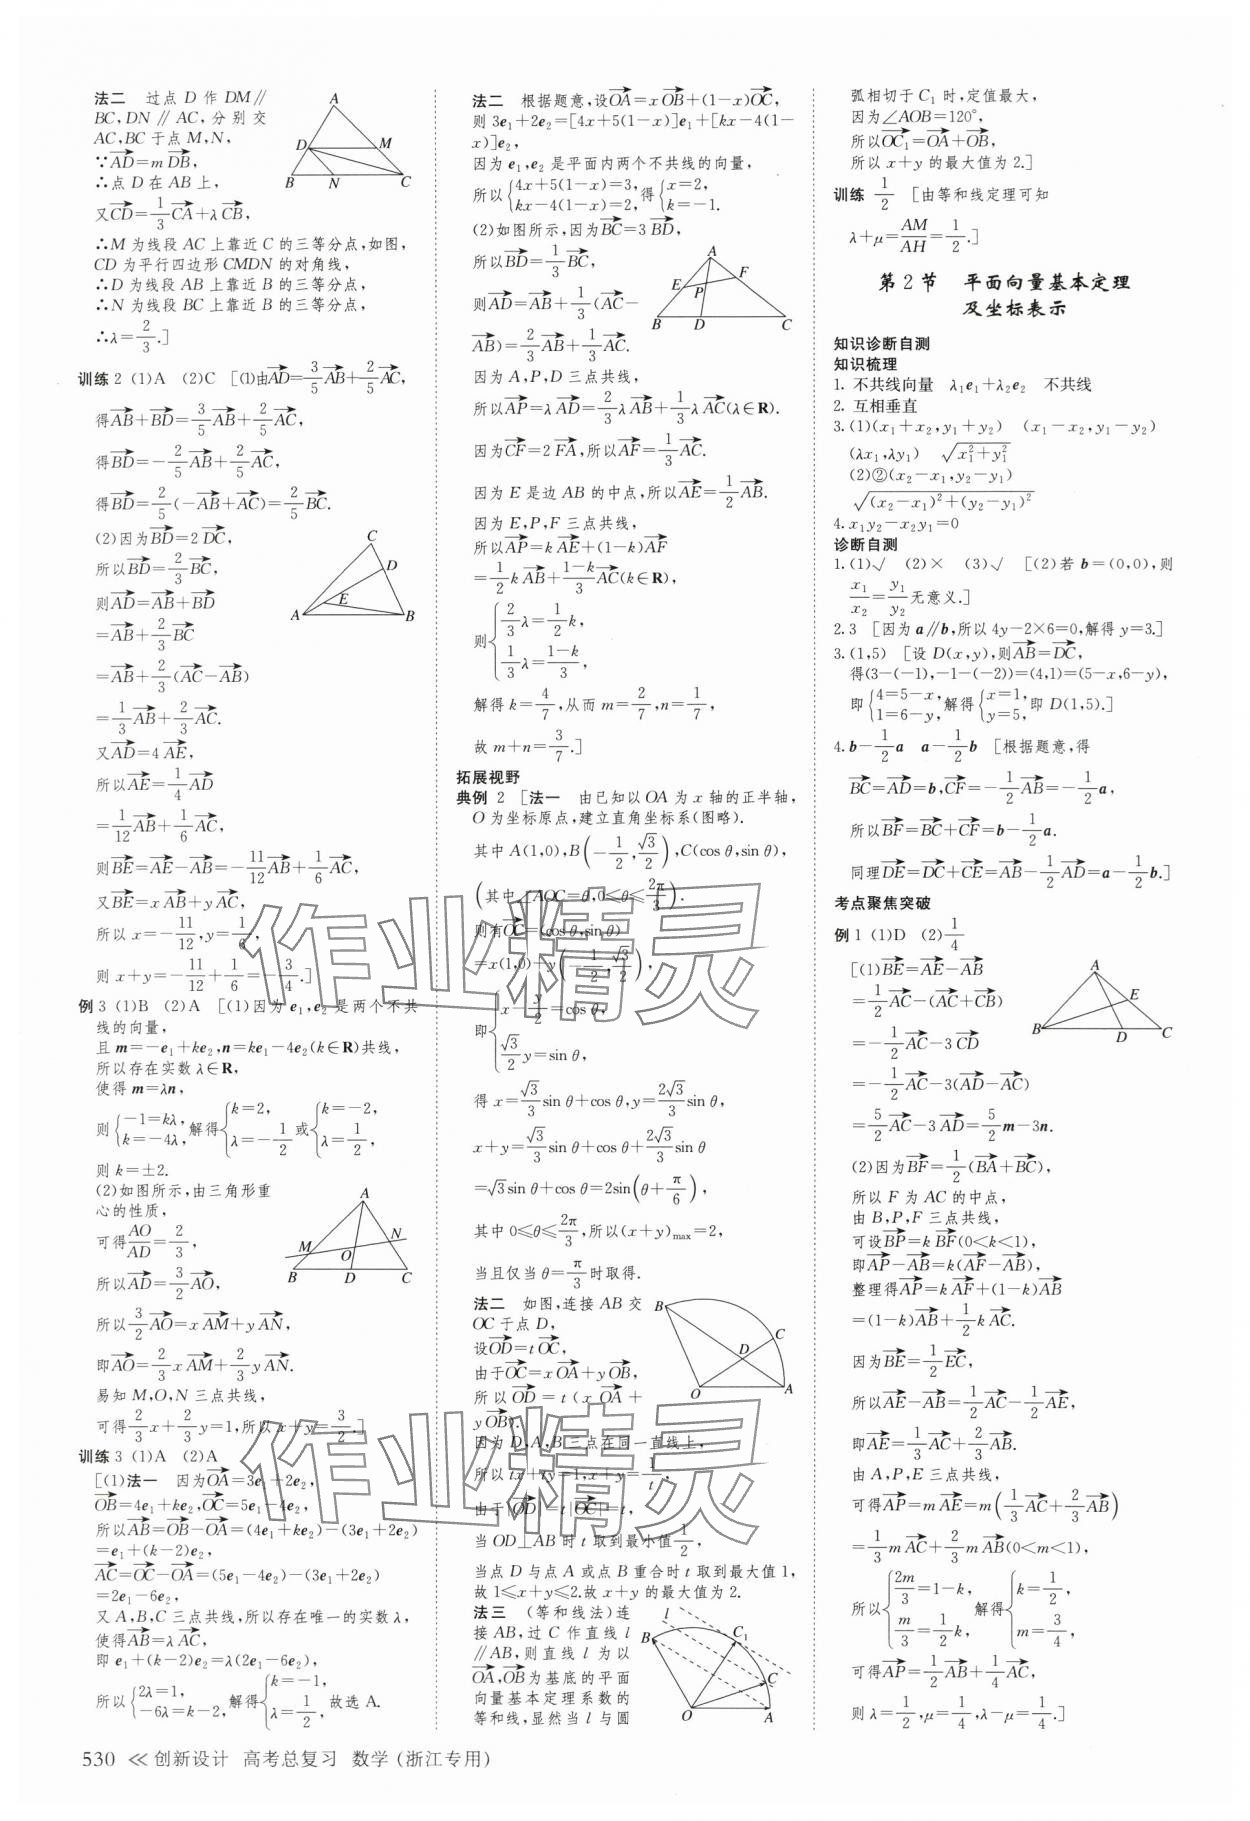 法二 过点 D 作 DM∥
BC,DN∥AC,分别交
AC,BC于点M,N,
∵$\overrightarrow{AD}=m\overrightarrow{DB}$,
∴点 D 在 AB 上,
又$\overrightarrow{CD}=\frac{1}{3}\overrightarrow{CA}+λ\overrightarrow{CB}$,
∴M 为线段 AC 上靠近 C 的三等分点,如图,
CD 为平行四边形 CMDN 的对角线,
∴D 为线段 AB 上靠近 B 的三等分点,
∴N 为线段 BC 上靠近 B 的三等分点,
∴$λ=\frac{2}{3}$.]
A
D
M
B
N
C
训练 2 (1)A (2)C [(1)由$\overrightarrow{AD}=\frac{3}{5}\overrightarrow{AB}+\frac{2}{5}\overrightarrow{AC}$,
得$\overrightarrow{AB}+\overrightarrow{BD}=\frac{3}{5}\overrightarrow{AB}+\frac{2}{5}\overrightarrow{AC}$,
得$\overrightarrow{BD}=-\frac{2}{5}\overrightarrow{AB}+\frac{2}{5}\overrightarrow{AC}$,
得$\overrightarrow{BD}=\frac{2}{5}(-\overrightarrow{AB}+\overrightarrow{AC})=\frac{2}{5}\overrightarrow{BC}$.
(2)因为$\overrightarrow{BD}=2\overrightarrow{DC}$,
所以$\overrightarrow{BD}=\frac{2}{3}\overrightarrow{BC}$,
则$\overrightarrow{AD}=\overrightarrow{AB}+\overrightarrow{BD}$
$=\overrightarrow{AB}+\frac{2}{3}\overrightarrow{BC}$
$=\overrightarrow{AB}+\frac{2}{3}(\overrightarrow{AC}-\overrightarrow{AB})$
$=\frac{1}{3}\overrightarrow{AB}+\frac{2}{3}\overrightarrow{AC}$.
又$\overrightarrow{AD}=4\overrightarrow{AE}$,
所以$\overrightarrow{AE}=\frac{1}{4}\overrightarrow{AD}$
$=\frac{1}{12}\overrightarrow{AB}+\frac{1}{6}\overrightarrow{AC}$,
则$\overrightarrow{BE}=\overrightarrow{AE}-\overrightarrow{AB}=-\frac{11}{12}\overrightarrow{AB}+\frac{1}{6}\overrightarrow{AC}$,
又$\overrightarrow{BE}=x\overrightarrow{AB}+y\overrightarrow{AC}$,
所以 $x=-\frac{11}{12},y=\frac{1}{6}$,
则 $x+y=-\frac{11}{12}+\frac{1}{6}=-\frac{3}{4}$.]
C
D
E
A
B
例 3 (1)B (2)A [(1)因为 $e_1,e_2$ 是两个不共
线的向量,
且 $m=-e_1+ke_2,n=ke_1-4e_2(k∈R)$共线,
所以存在实数 λ∈R,
使得 m=λn,
则$\begin{cases}-1=kλ,\\k=-4λ,\end{cases}$解得$\begin{cases}k=2,\\λ=-\frac{1}{2}\end{cases}$或$\begin{cases}k=-2,\\λ=\frac{1}{2},\end{cases}$
则 k=±2.
(2)如图所示,由三角形重
心的性质,
可得$\frac{AO}{AD}=\frac{2}{3}$,
所以$\overrightarrow{AD}=\frac{3}{2}\overrightarrow{AO}$,
所以$\frac{3}{2}\overrightarrow{AO}=x\overrightarrow{AM}+y\overrightarrow{AN}$,
即$\overrightarrow{AO}=\frac{2}{3}x\overrightarrow{AM}+\frac{2}{3}y\overrightarrow{AN}$.
易知 M,O,N 三点共线,
可得$\frac{2}{3}x+\frac{2}{3}y=1$,所以 $x+y=\frac{3}{2}$.]
A
M
N
O
B
D
C
训练 3 (1)A (2)A
[(1)法一 因为$\overrightarrow{OA}=3e_1+2e_2$,
$\overrightarrow{OB}=4e_1+ke_2,\overrightarrow{OC}=5e_1-4e_2$,
所以$\overrightarrow{AB}=\overrightarrow{OB}-\overrightarrow{OA}=(4e_1+ke_2)-(3e_1+2e_2)$
$=e_1+(k-2)e_2$,
$\overrightarrow{AC}=\overrightarrow{OC}-\overrightarrow{OA}=(5e_1-4e_2)-(3e_1+2e_2)$
$=2e_1-6e_2$,
又 A,B,C 三点共线,所以存在唯一的实数 λ,
使得$\overrightarrow{AB}=λ\overrightarrow{AC}$,
即 $e_1+(k-2)e_2=λ(2e_1-6e_2)$,
所以$\begin{cases}2λ=1,\\-6λ=k-2,\end{cases}$解得$\begin{cases}k=-1,\\λ=\frac{1}{2},\end{cases}$故选 A.
法二 根据题意,设$\overrightarrow{OA}=x\overrightarrow{OB}+(1-x)\overrightarrow{OC}$,
则 $3e_1+2e_2=[4x+5(1-x)]e_1+[kx-4(1-$
$x)]e_2$,
因为 $e_1,e_2$ 是平面内两个不共线的向量,
所以$\begin{cases}4x+5(1-x)=3,\\kx-4(1-x)=2,\end{cases}$得$\begin{cases}x=2,\\k=-1.\end{cases}$
(2)如图所示,因为$\overrightarrow{BC}=3\overrightarrow{BD}$,
所以$\overrightarrow{BD}=\frac{1}{3}\overrightarrow{BC}$,
则$\overrightarrow{AD}=\overrightarrow{AB}+\frac{1}{3}(\overrightarrow{AC}-$
$\overrightarrow{AB})=\frac{2}{3}\overrightarrow{AB}+\frac{1}{3}\overrightarrow{AC}$.
A
E
F
P
B
D
C
因为 A,P,D 三点共线,
所以$\overrightarrow{AP}=λ\overrightarrow{AD}=\frac{2}{3}λ\overrightarrow{AB}+\frac{1}{3}λ\overrightarrow{AC}(λ∈R)$.
因为$\overrightarrow{CF}=2\overrightarrow{FA}$,所以$\overrightarrow{AF}=\frac{1}{3}\overrightarrow{AC}$.
因为 E 是边 AB 的中点,所以$\overrightarrow{AE}=\frac{1}{2}\overrightarrow{AB}$.
因为 E,P,F 三点共线,
所以$\overrightarrow{AP}=k\overrightarrow{AE}+(1-k)\overrightarrow{AF}$
$=\frac{1}{2}k\overrightarrow{AB}+\frac{1-k}{3}\overrightarrow{AC}(k∈R)$,
则$\begin{cases}\frac{2}{3}λ=\frac{1}{2}k,\\\frac{1}{3}λ=\frac{1-k}{3},\end{cases}$
解得 $k=\frac{4}{7}$,从而 $m=\frac{2}{7},n=\frac{1}{7}$,
故 $m+n=\frac{3}{7}$.]
拓展视野
典例 2 [法一 由已知以 OA 为 x 轴的正半轴,
O 为坐标原点,建立直角坐标系(图略).
其中 $A(1,0),B\left(-\frac{1}{2},\frac{\sqrt{3}}{2}\right),C(\cosθ,\sinθ)$,
(其中∠AOC=θ,$0≤θ≤\frac{2π}{3}$).
则有$\overrightarrow{OC}=(\cosθ,\sinθ)$
$=x(1,0)+y\left(-\frac{1}{2},\frac{\sqrt{3}}{2}\right)$,
即$\begin{cases}x-\frac{y}{2}=\cosθ,\\\frac{\sqrt{3}}{2}y=\sinθ,\end{cases}$
得 $x=\frac{\sqrt{3}}{3}\sinθ+\cosθ,y=\frac{2\sqrt{3}}{3}\sinθ$,
$x+y=\frac{\sqrt{3}}{3}\sinθ+\cosθ+\frac{2\sqrt{3}}{3}\sinθ$
$=\sqrt{3}\sinθ+\cosθ=2\sin\left(θ+\frac{π}{6}\right)$,
其中 $0≤θ≤\frac{2π}{3}$,所以$(x+y)_{max}=2$,
当且仅当 $θ=\frac{π}{3}$时取得.
法二 如图,连接 AB 交
OC 于点 D,
设$\overrightarrow{OD}=t\overrightarrow{OC}$,
由于$\overrightarrow{OC}=x\overrightarrow{OA}+y\overrightarrow{OB}$,
所以 $\overrightarrow{OD}=t(x\overrightarrow{OA}+$
$y\overrightarrow{OB})$.
B
C
D
O
A
因为 D,A,B 三点在同一直线上,
所以 $tx+ty=1,x+y=\frac{1}{t}$,
由于$|\overrightarrow{OD}|=t|\overrightarrow{OC}|=t$,
当 OD⊥AB 时 t 取到最小值$\frac{1}{2}$,
当点 D 与点 A 或点 B 重合时 t 取到最大值 1,
故 1≤x+y≤2.故 x+y 的最大值为 2.
法三 (等和线法)连
接 AB,过 C 作直线 l
∥AB,则直线 l 为以
$\overrightarrow{OA},\overrightarrow{OB}$为基底的平面
向量基本定理系数的
等和线,显然当 l 与圆
l
B
$C_1$
C
O
A
弧相切于 $C_1$ 时,定值最大,
因为∠AOB=120°,
所以$\overrightarrow{OC_1}=\overrightarrow{OA}+\overrightarrow{OB}$,
所以 x+y 的最大值为 2.]
训练 $\frac{1}{2}$ [由等和线定理可知
$λ+μ=\frac{AM}{AH}=\frac{1}{2}$.]
第 2 节 平面向量基本定理
及坐标表示
知识诊断自测
知识梳理
1. 不共线向量 $λ_1e_1+λ_2e_2$ 不共线
2. 互相垂直
3.(1)$(x_1+x_2,y_1+y_2)$ $(x_1-x_2,y_1-y_2)$
$(λx_1,λy_1)$ $\sqrt{x_1^2+y_1^2}$
(2)②$(x_2-x_1,y_2-y_1)$
$\sqrt{(x_2-x_1)^2+(y_2-y_1)^2}$
4.$x_1y_2-x_2y_1=0$
诊断自测
1.(1)√ (2)× (3)√ [(2)若 b=(0,0),则
$\frac{x_1}{x_2}=\frac{y_1}{y_2}$无意义.]
2.3 [因为 a∥b,所以 4y-2×6=0,解得 y=3.]
3.(1,5) [设 D(x,y),则$\overrightarrow{AB}=\overrightarrow{DC}$,
得(3-(-1),-1-(-2))=(4,1)=(5-x,6-y),
即$\begin{cases}4=5-x,\\1=6-y,\end{cases}$解得$\begin{cases}x=1,\\y=5,\end{cases}$即 D(1,5).]
4.$b-\frac{1}{2}a$ $a-\frac{1}{2}b$ [根据题意,得
$\overrightarrow{BC}=\overrightarrow{AD}=b,\overrightarrow{CF}=-\frac{1}{2}\overrightarrow{AB}=-\frac{1}{2}a$,
所以$\overrightarrow{BF}=\overrightarrow{BC}+\overrightarrow{CF}=b-\frac{1}{2}a$.
同理$\overrightarrow{DE}=\overrightarrow{DC}+\overrightarrow{CE}=\overrightarrow{AB}-\frac{1}{2}\overrightarrow{AD}=a-\frac{1}{2}b$.]
考点聚焦突破
例 1 (1)D (2)$\frac{1}{4}$
[(1)$\overrightarrow{BE}=\overrightarrow{AE}-\overrightarrow{AB}$
$=\frac{1}{2}\overrightarrow{AC}-(\overrightarrow{AC}+\overrightarrow{CB})$
$=-\frac{1}{2}\overrightarrow{AC}-3\overrightarrow{CD}$
$=-\frac{1}{2}\overrightarrow{AC}-3(\overrightarrow{AD}-\overrightarrow{AC})$
$=\frac{5}{2}\overrightarrow{AC}-3\overrightarrow{AD}=\frac{5}{2}m-3n$.
A
E
B
D
C
(2)因为$\overrightarrow{BF}=\frac{1}{2}(\overrightarrow{BA}+\overrightarrow{BC})$,
所以 F 为 AC 的中点,
由 B,P,F 三点共线,
可设$\overrightarrow{BP}=k\overrightarrow{BF}(0<k<1)$,
即$\overrightarrow{AP}-\overrightarrow{AB}=k(\overrightarrow{AF}-\overrightarrow{AB})$,
整理得$\overrightarrow{AP}=k\overrightarrow{AF}+(1-k)\overrightarrow{AB}$
$=(1-k)\overrightarrow{AB}+\frac{1}{2}k\overrightarrow{AC}$.
因为$\overrightarrow{BE}=\frac{1}{2}\overrightarrow{EC}$,
所以$\overrightarrow{AE}-\overrightarrow{AB}=\frac{1}{2}\overrightarrow{AC}-\frac{1}{2}\overrightarrow{AE}$,
即$\overrightarrow{AE}=\frac{1}{3}\overrightarrow{AC}+\frac{2}{3}\overrightarrow{AB}$.
由 A,P,E 三点共线,
可得$\overrightarrow{AP}=m\overrightarrow{AE}=m\left(\frac{1}{3}\overrightarrow{AC}+\frac{2}{3}\overrightarrow{AB}\right)$
$=\frac{1}{3}m\overrightarrow{AC}+\frac{2}{3}m\overrightarrow{AB}(0<m<1)$,
所以$\begin{cases}\frac{2m}{3}=1-k,\\\frac{m}{3}=\frac{1}{2}k,\end{cases}$解得$\begin{cases}k=\frac{1}{2},\\m=\frac{3}{4},\end{cases}$
可得$\overrightarrow{AP}=\frac{1}{2}\overrightarrow{AB}+\frac{1}{4}\overrightarrow{AC}$,
则 $λ=\frac{1}{2},μ=\frac{1}{4},λ-μ=\frac{1}{4}$.]
作业精灵
作业精灵
530 ≪ 创新设计 高考总复习 数学(浙江专用)